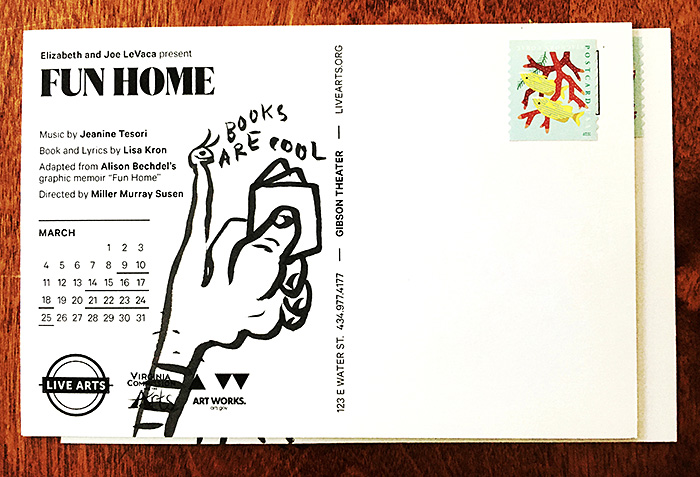 Elizabeth and Joe LeVaca present
FUN HOME
Music by Jeanine Tesori
Book and Lyrics by Lisa Kron
Adapted from Alison Bechdel's
graphic memoir "Fun Home"
Directed by Miller Murray Susen
BOOKS
ARE COOL
MARCH
1 2 3
4 5 6 7 8 9 10
11 12 13 14 15 16 17
18 19 20 21 22 23 24
25 26 27 28 29 30 31
LIVE ARTS
VIRGINIA
Arts
ART WORKS.
arts.gov
123 E WATER ST. 434.977.4177 — GIBSON THEATER — LIVEARTS.ORG
POSTCARD